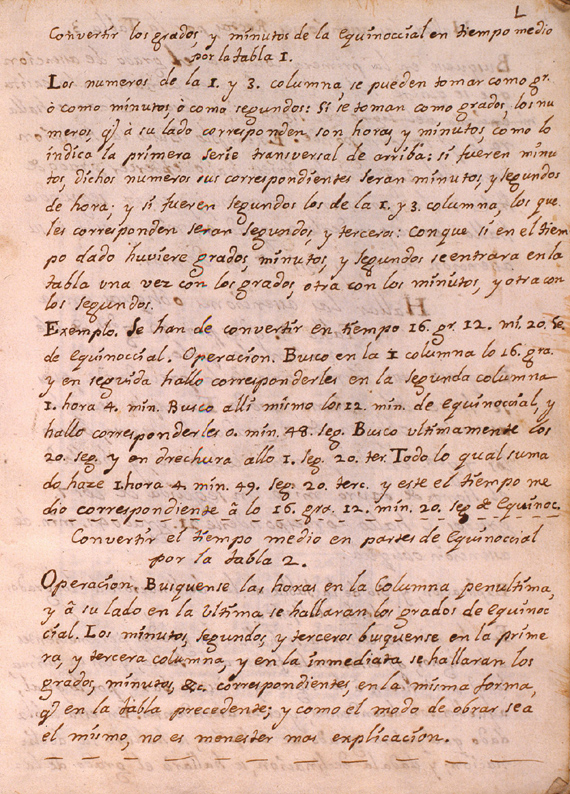 L
Convertir los grados, y minutos de la Equinoccial en tiempo medio
por la tabla 1.
Los numeros de la 1. y 3. columna, se pueden tomar como gr.
ò como minutos, ò como segundos: Si se toman como grados, los nu
meros, q̃ à su lado corresponden, son horas, y minutos, como lo
indica la primera serie transversal de arriba: si fueren minu
tos, dichos numeros sus correspondientes seran minutos, y segundos
de hora; y si fueren segundos los de la 1. y 3. columna, los que
les corresponden seran segundos, y terceros: Conque si en el tiem
po dado huviere grados, minutos, y segundos se entrara en la
tabla una vez con los grados, otra con los minutos, y otra con
los segundos.
Exemplo. Se han de convertir en tiempo 16. gr. 12. mi. 20. Se.
de Equinoccial. Operacion. Busco en la 1 columna lo 16. gra.
y en seguida hallo corresponderles en la segunda columna
1. hora 4. min. Busco alli mismo los 12. min. de Equinoccial, y
hallo corresponderles 0. min. 48. seg. Busco ultimamente los
20. seg. y en drechura allo 1. seg. 20. ter. Todo lo qual suma
do haze 1 hora 4. min. 49. seg. 20. terc. y este el tiempo me
dio correspondiente â lo 16. gra. 12. min. 20. seg de Equinoc.
Convertir el tiempo medio en partes de Equinoccial
por la tabla 2.
Operacion. Busquense las horas en la Columna penultima,
y â su lado en la Ultima se hallaran los grados de Equinoc
cial. Los minutos, segundos, y terceros busquense en la prime
ra, y tercera columna, y en la inmediata se hallaran los
grados, minutos, &c. correspondientes, en la misma forma,
q̃ en la tabla precedente; y como el modo de obrar sea
el mismo, no es menester mas explicacion.